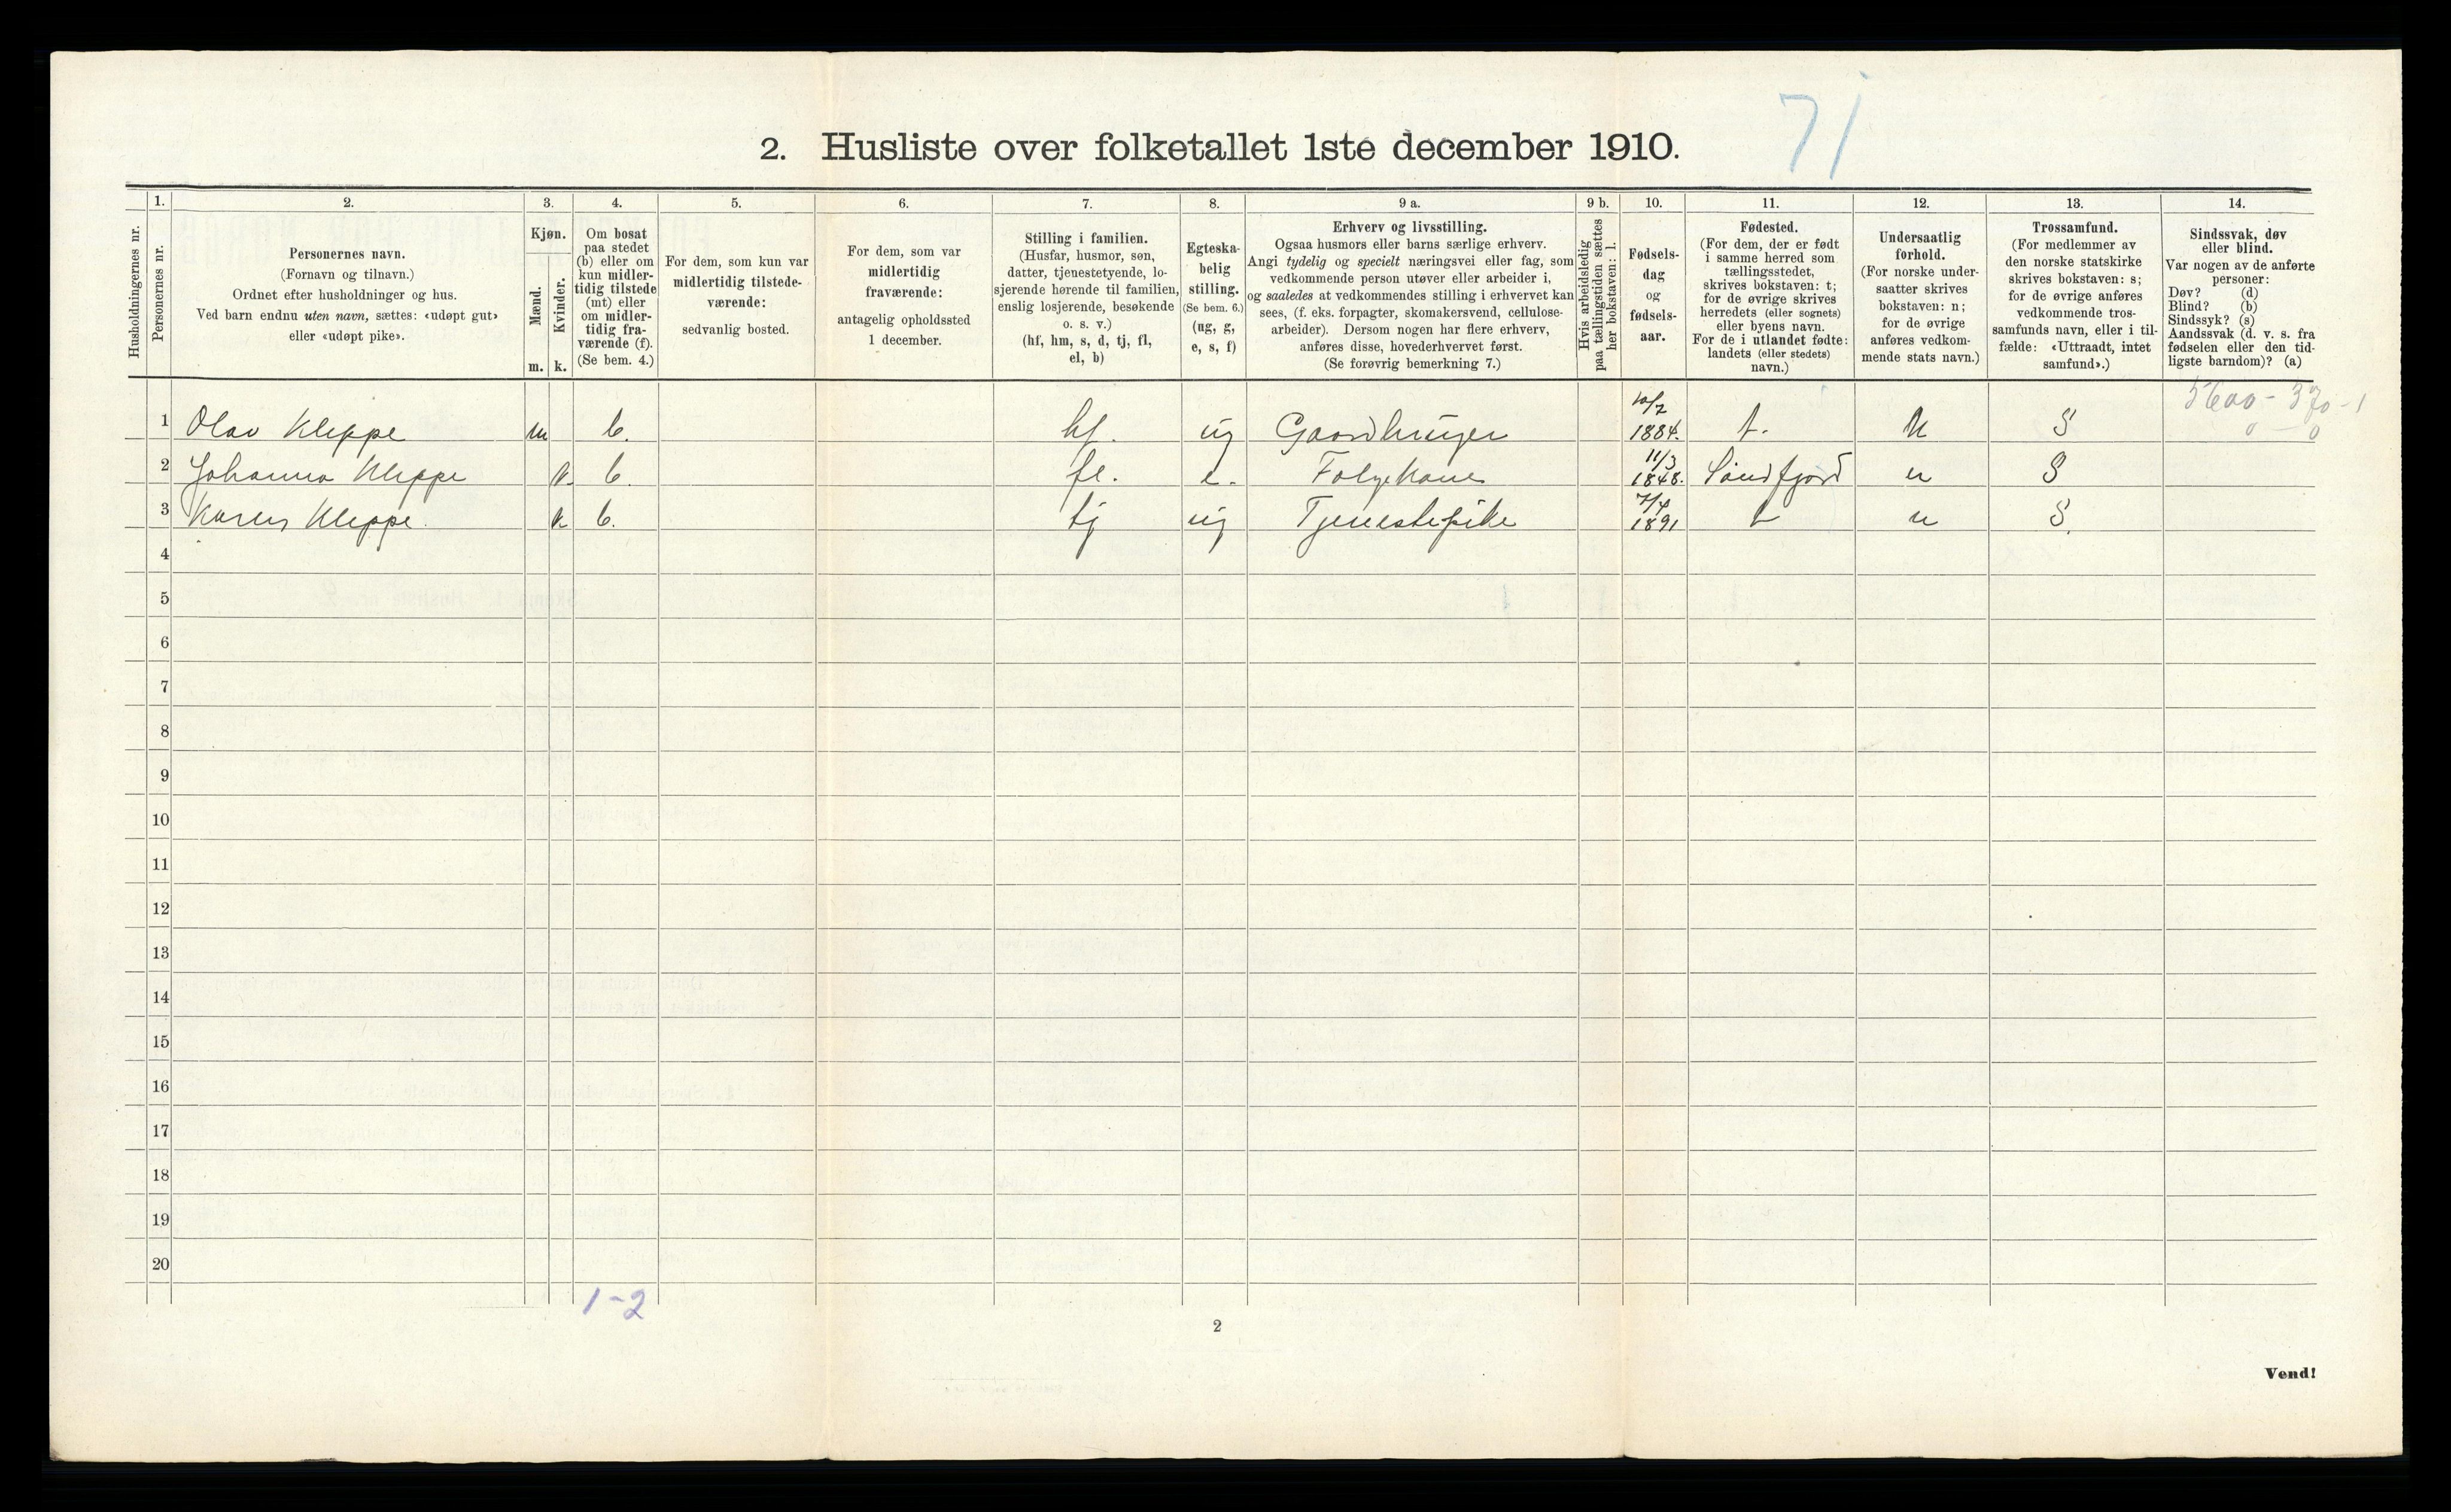 71
2. Husliste over folketallet 1ste december 1910.
Husholdningernes nr.
1.
Personernes nr.
2.
Personernes navn.
(Fornavn og tilnavn.)
Ordnet efter husholdninger og hus.
Ved barn endnu uten navn, sættes: «udøpt gut»
eller «udøpt pike».
3.
Kjøn.
Mænd.
Kvinder.
m. k.
4.
Om bosat
paa stedet
(b) eller om
kun midler-
tidig tilstede
(mt) eller
om midler-
tidig fra-
værende (f).
(Se bem. 4.)
5.
For dem, som kun var
midlertidig tilstede-
værende:
sedvanlig bosted.
6.
For dem, som var
midlertidig
fraværende:
antagelig opholdssted
1 december.
7.
Stilling i familien.
(Husfar, husmor, søn,
datter, tjenestetyende, lo-
sjerende hørende til familien,
enslig losjerende, besøkende
o. s. v.)
(hf, hm, s, d, tj, fl,
el, b)
8.
Egteska-
belig
stilling.
(Se bem. 6.)
(ug, g,
e, s, f)
9 a.
Erhverv og livsstilling.
Ogsaa husmors eller barns særlige erhverv.
Angi tydelig og specielt næringsvei eller fag, som
vedkommende person utøver eller arbeider i,
og saaledes at vedkommendes stilling i erhvervet kan
sees, (f. eks. forpagter, skomakersvend, cellulose-
arbeider). Dersom nogen har flere erhverv,
anføres disse, hovederhvervet først.
(Se forøvrig bemerkning 7.)
9 b.
Hvis arbeidsledig
paa tællingstiden sættes
her bokstaven: l.
10.
Fødsels-
dag
og
fødsels-
aar.
11.
Fødested.
(For dem, der er født
i samme herred som
tællingsstedet,
skrives bokstaven: t;
for de øvrige skrives
herredets (eller sognets)
eller byens navn.
For de i utlandet fødte:
landets (eller stedets)
navn.)
12.
Undersaatlig
forhold.
(For norske under-
saatter skrives
bokstaven: n;
for de øvrige
anføres vedkom-
mende stats navn.)
13.
Trossamfund.
(For medlemmer av
den norske statskirke
skrives bokstaven: s;
for de øvrige anføres
vedkommende tros-
samfunds navn, eller i til-
fælde: «Uttraadt, intet
samfund».)
14.
Sindssvak, døv
eller blind.
Var nogen av de anførte
personer:
Døv? (d)
Blind? (b)
Sindssyk? (s)
Aandssvak (d. v. s. fra
fødselen eller den tid-
ligste barndom)? (a)
5600 - 370 - 1
0 — 0
1 Olav Kleppe m b. hf. ug Gaardbruger 10/7 1884. t. n S
2 Johanna Kleppe k. b. fl. e. Folgekone 11/3 1848. Söndfjord n S
3 Karen Kleppe. k b. tj ug Tjenestepike 7/4 1891 t n S.
4
5
6
7
8
9
10
11
12
13
14
15
16
17
18
19
20
1-2
2
Vend!